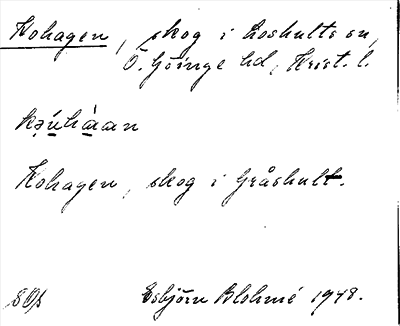 Kohagen, skog i Loshults sn,
Ö. Göinge hd, Krist. l.
Kohagen, skog i Gråshult.
Esbjörn Blohmé 1948.